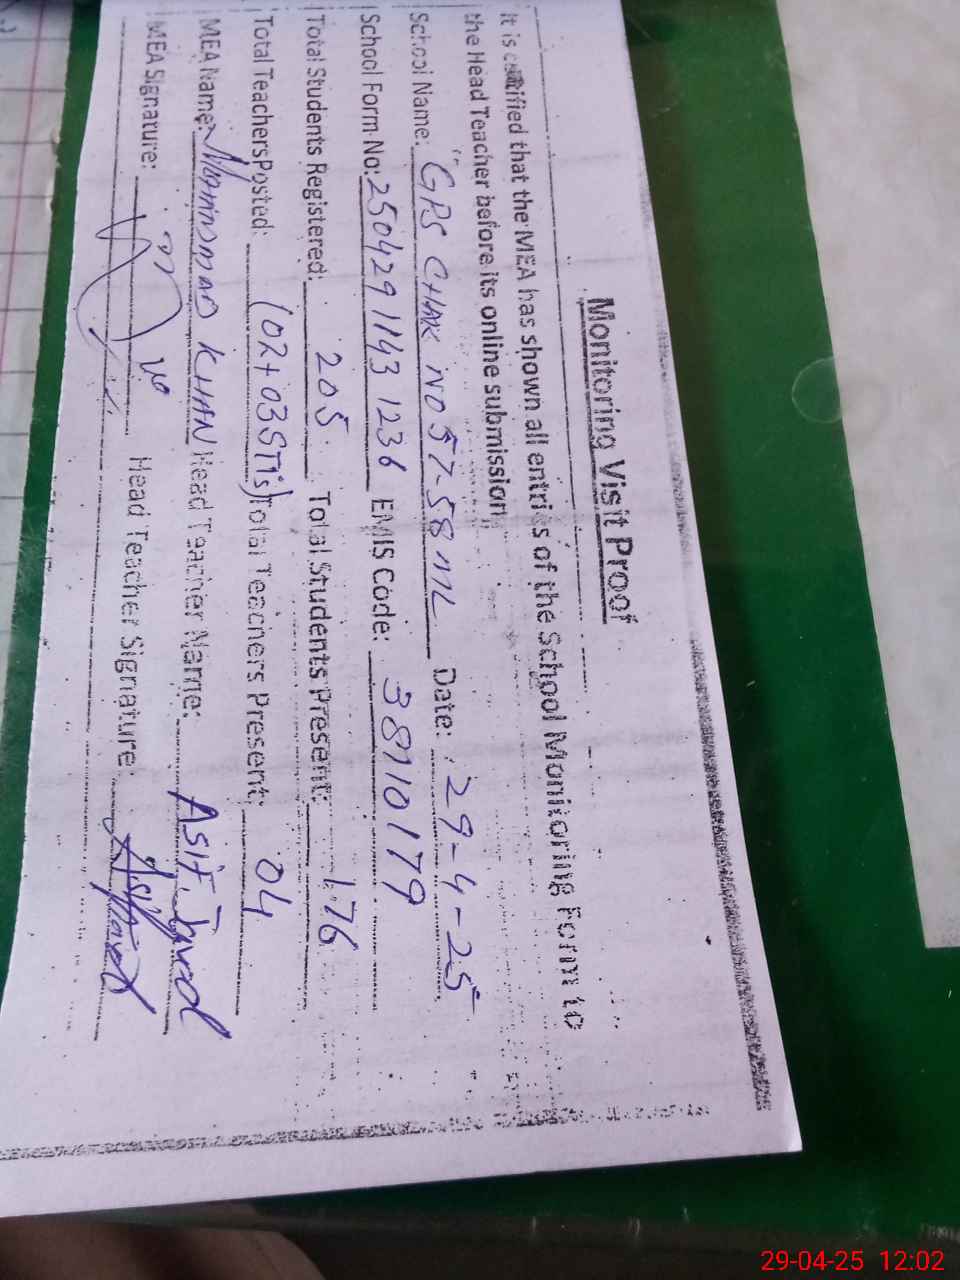 Monitoring Visit Proof
It is certified that the MEA has shown all entries of the School Monitoring Form to
the Head Teacher before its online submission
School Name: GPS CHAK NO 57-58 ML Date: 29-4-25
School Form No: 250429 1143 1236 EMIS Code: 38710179
Total Students Registered: 205 Total Students Present: 176
Total Teachers Posted: (02+03STIs) Total Teachers Present: 04
MEA Name: KHAN Head Teacher Name: ASIF Javed
MEA Signature: Head Teacher Signature:
29-04-25 12:02